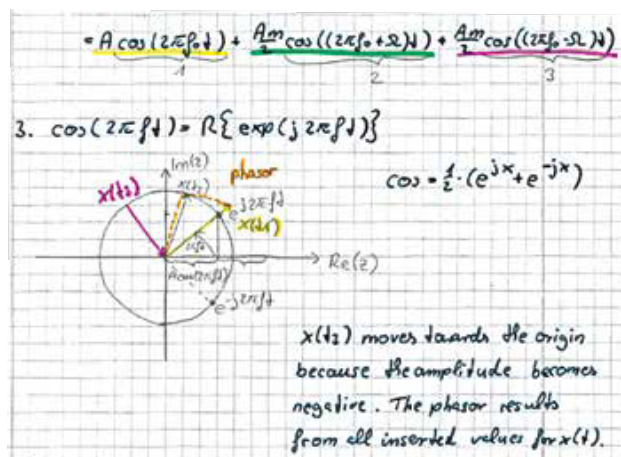 = A cos(2πf₀t) + Am/2 cos((2πf₀+Ω)t) + Am/2 cos((2πf₀-Ω)t)
1 2 3
3. cos(2πft) = R{exp(j2πft)}
Im(z)
x(t₂) phasor
x(t₃)
cos = 1/2 · (e^jx + e^-jx)
e^j2πft
x(t₁)
2πft
Re(z)
A cos(2πft)
e^-j2πft
x(t₃) moves towards the origin
because the amplitude becomes
negative. The phasor results
from all inserted values for x(t).